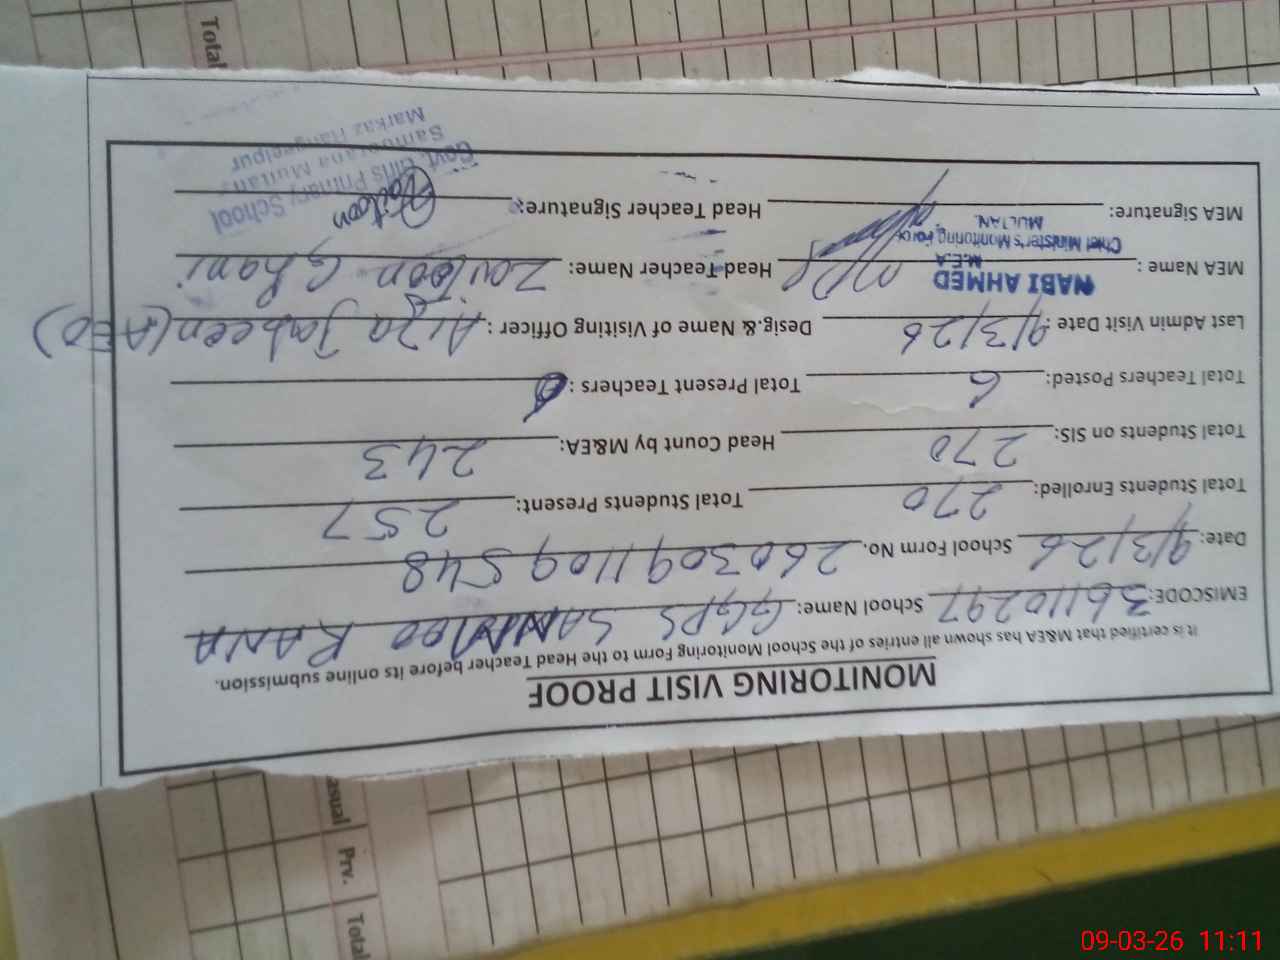 MONITORING VISIT PROOF
It is certified that M&EA has shown all entries of the School Monitoring Form to the Head Teacher before its online submission.
EMISCODE: 36110297 School Name: GGPS SANMOO RANA
Date: 9/3/26 School Form No. 2603091109548
Total Students Enrolled: 270 Total Students Present: 257
Total Students on SIS: 270 Head Count by M&EA: 243
Total Teachers Posted: 6 Total Present Teachers : 6
Last Admin Visit Date : 9/3/26 Desig.&. Name of Visiting Officer : Aiza Jabeen (AEO)
MEA Name : NABI AHMED Head Teacher Name: Zaytoon Ghani
M.E.A
Chief Minister's Monitoring Force
MULTAN.
MEA Signature: Head Teacher Signature: Zaitoon
Govt. Girls Primary School
Markaz
Total
asual
Prv.
Total
09-03-26 11:11